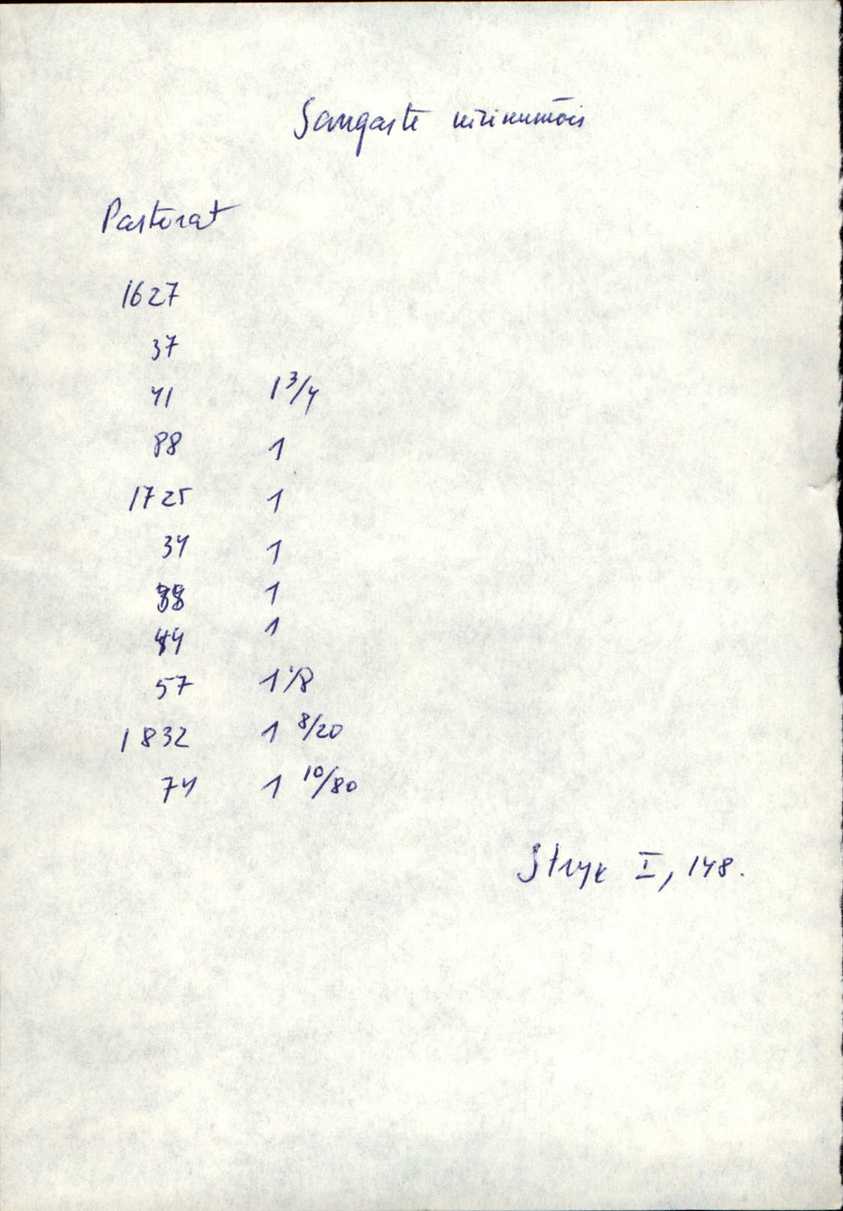 Sangaste kirikumõis
Pastorat
1627
37
41 1 3/4
88 1
1725 1
34 1
1
44 1
57 1 1/8
1832 1 8/20
74 1 10/80
Stryk I, 148.